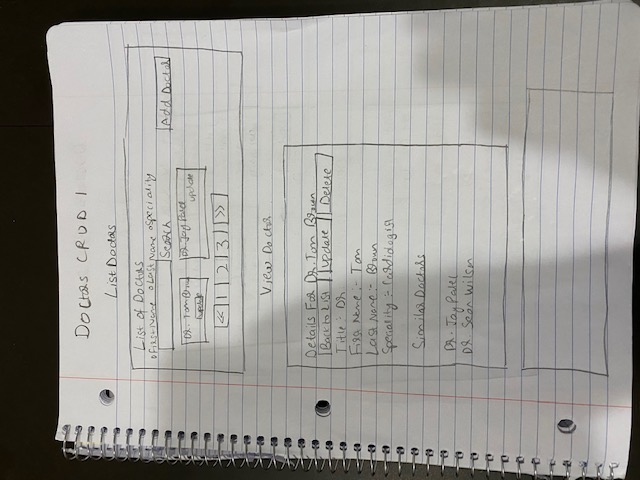 Doctors CRUD 1
List Doctors
List of Doctors
o First Name o Last Name o Speciality
Search Add Doctor
Dr. Tom Brown Dr. Jay Patel
update update
<< 1 2 3 >>
View Doctor
Details For Dr. Tom Brown
Back to List Update Delete
Title :- Dr
First Name :- Tom
Last Name :- Brown
Speciality :- Cardiologist
Similar Doctors
Dr. Jay Patel
Dr. Sean Wilson